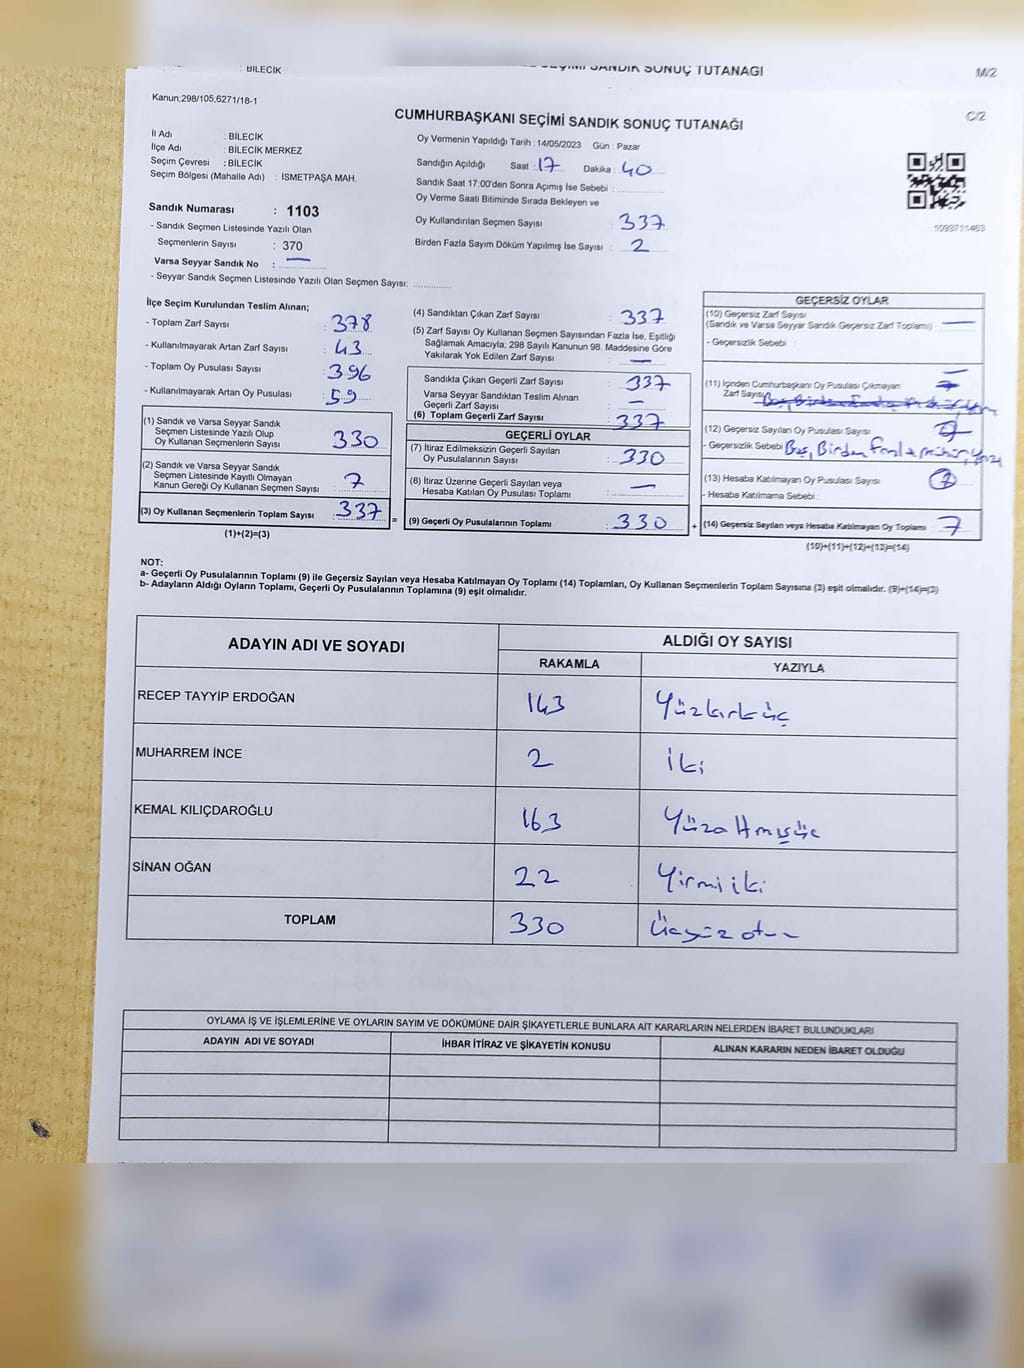 BİLECİK
SEÇİMİ SANDIK SONUÇ TUTANAĞI
M/2
Kanun;298/105;6271/18-1
C/2
CUMHURBAŞKANI SEÇİMİ SANDIK SONUÇ TUTANAĞI
İl Adı : BİLECİK
İlçe Adı : BİLECİK MERKEZ
Seçim Çevresi : BİLECİK
Seçim Bölgesi (Mahalle Adı) : İSMETPAŞA MAH.
Oy Vermenin Yapıldığı Tarih : 14/05/2023 Gün : Pazar
Sandığın Açıldığı Saat : 17 Dakika : 40
Sandık Saat 17:00'den Sonra Açımış İse Sebebi :
Oy Verme Saati Bitiminde Sırada Bekleyen ve
Oy Kullandırılan Seçmen Sayısı : 337
Birden Fazla Sayım Döküm Yapılmış İse Sayısı : 2
1093711463
Sandık Numarası : 1103
- Sandık Seçmen Listesinde Yazılı Olan
Seçmenlerin Sayısı : 370
Varsa Seyyar Sandık No : —
- Seyyar Sandık Seçmen Listesinde Yazılı Olan Seçmen Sayısı:
İlçe Seçim Kurulundan Teslim Alınan;
- Toplam Zarf Sayısı : 378
- Kullanılmayarak Artan Zarf Sayısı : 43
- Toplam Oy Pusulası Sayısı : 396
- Kullanılmayarak Artan Oy Pusulası : 59
(1) Sandık ve Varsa Seyyar Sandık
Seçmen Listesinde Yazılı Olup
Oy Kullanan Seçmenlerin Sayısı : 330
(2) Sandık ve Varsa Seyyar Sandık
Seçmen Listesinde Kayıtlı Olmayan
Kanun Gereği Oy Kullanan Seçmen Sayısı : 7
(3) Oy Kullanan Seçmenlerin Toplam Sayısı : 337 =
(1)+(2)=(3)
(4) Sandıktan Çıkan Zarf Sayısı : 337
(5) Zarf Sayısı Oy Kullanan Seçmen Sayısından Fazla İse, Eşitliği
Sağlamak Amacıyla; 298 Sayılı Kanunun 98. Maddesine Göre
Yakılarak Yok Edilen Zarf Sayısı : —
Sandıkta Çıkan Geçerli Zarf Sayısı : 337
Varsa Seyyar Sandıktan Teslim Alınan
Geçerli Zarf Sayısı : —
(6) Toplam Geçerli Zarf Sayısı : 337
GEÇERLİ OYLAR
(7) İtiraz Edilmeksizin Geçerli Sayılan
Oy Pusulalarının Sayısı : 330
(8) İtiraz Üzerine Geçerli Sayılan veya
Hesaba Katılan Oy Pusulası Toplamı : —
(9) Geçerli Oy Pusulalarının Toplamı : 330 +
GEÇERSİZ OYLAR
(10) Geçersiz Zarf Sayısı
(Sandık ve Varsa Seyyar Sandık Geçersiz Zarf Toplamı) : —
- Geçersizlik Sebebi :
(11) İçinden Cumhurbaşkanı Oy Pusulası Çıkmayan
Zarf Sayısı
(12) Geçersiz Sayılan Oy Pusulası Sayısı :
- Geçersizlik Sebebi Boş, Birden Fazla mühür, Yazı
(13) Hesaba Katılmayan Oy Pusulası Sayısı : 7
- Hesaba Katılmama Sebebi :
(14) Geçersiz Sayılan veya Hesaba Katılmayan Oy Toplamı : 7
(10)+(11)+(12)+(13)=(14)
NOT:
a- Geçerli Oy Pusulalarının Toplamı (9) ile Geçersiz Sayılan veya Hesaba Katılmayan Oy Toplamı (14) Toplamları, Oy Kullanan Seçmenlerin Toplam Sayısına (3) eşit olmalıdır. (9)+(14)=(3)
b- Adayların Aldığı Oyların Toplamı, Geçerli Oy Pusulalarının Toplamına (9) eşit olmalıdır.
ADAYIN ADI VE SOYADI
ALDIĞI OY SAYISI
RAKAMLA YAZIYLA
RECEP TAYYİP ERDOĞAN 143 Yüzkırküç
MUHARREM İNCE 2 İki
KEMAL KILIÇDAROĞLU 163 Yüzaltmışüç
SİNAN OĞAN 22 Yirmiiki
TOPLAM 330 Üçyüzotuz
OYLAMA İŞ VE İŞLEMLERİNE VE OYLARIN SAYIM VE DÖKÜMÜNE DAİR ŞİKAYETLERLE BUNLARA AİT KARARLARIN NELERDEN İBARET BULUNDUKLARI
ADAYIN ADI VE SOYADI İHBAR İTİRAZ VE ŞİKAYETİN KONUSU ALINAN KARARIN NEDEN İBARET OLDUĞU